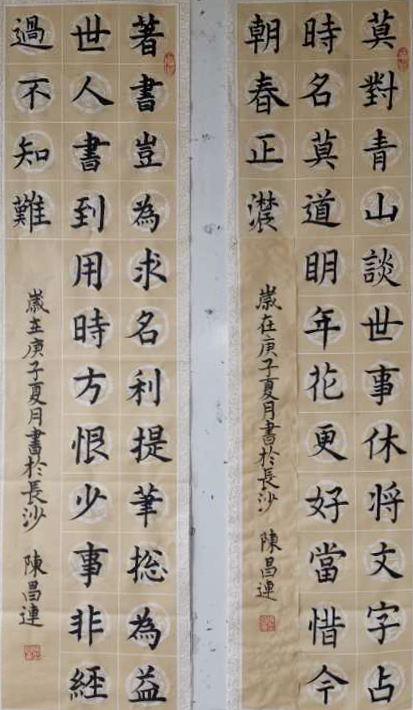 莫對青山談世事休将文字占
時名莫道明年花更好當惜今
朝春正濃
歲在庚子夏月書於長沙 陳昌連
著書豈為求名利提筆総為益
世人書到用時方恨少事非經
過不知難
歲在庚子夏月書於長沙 陳昌連